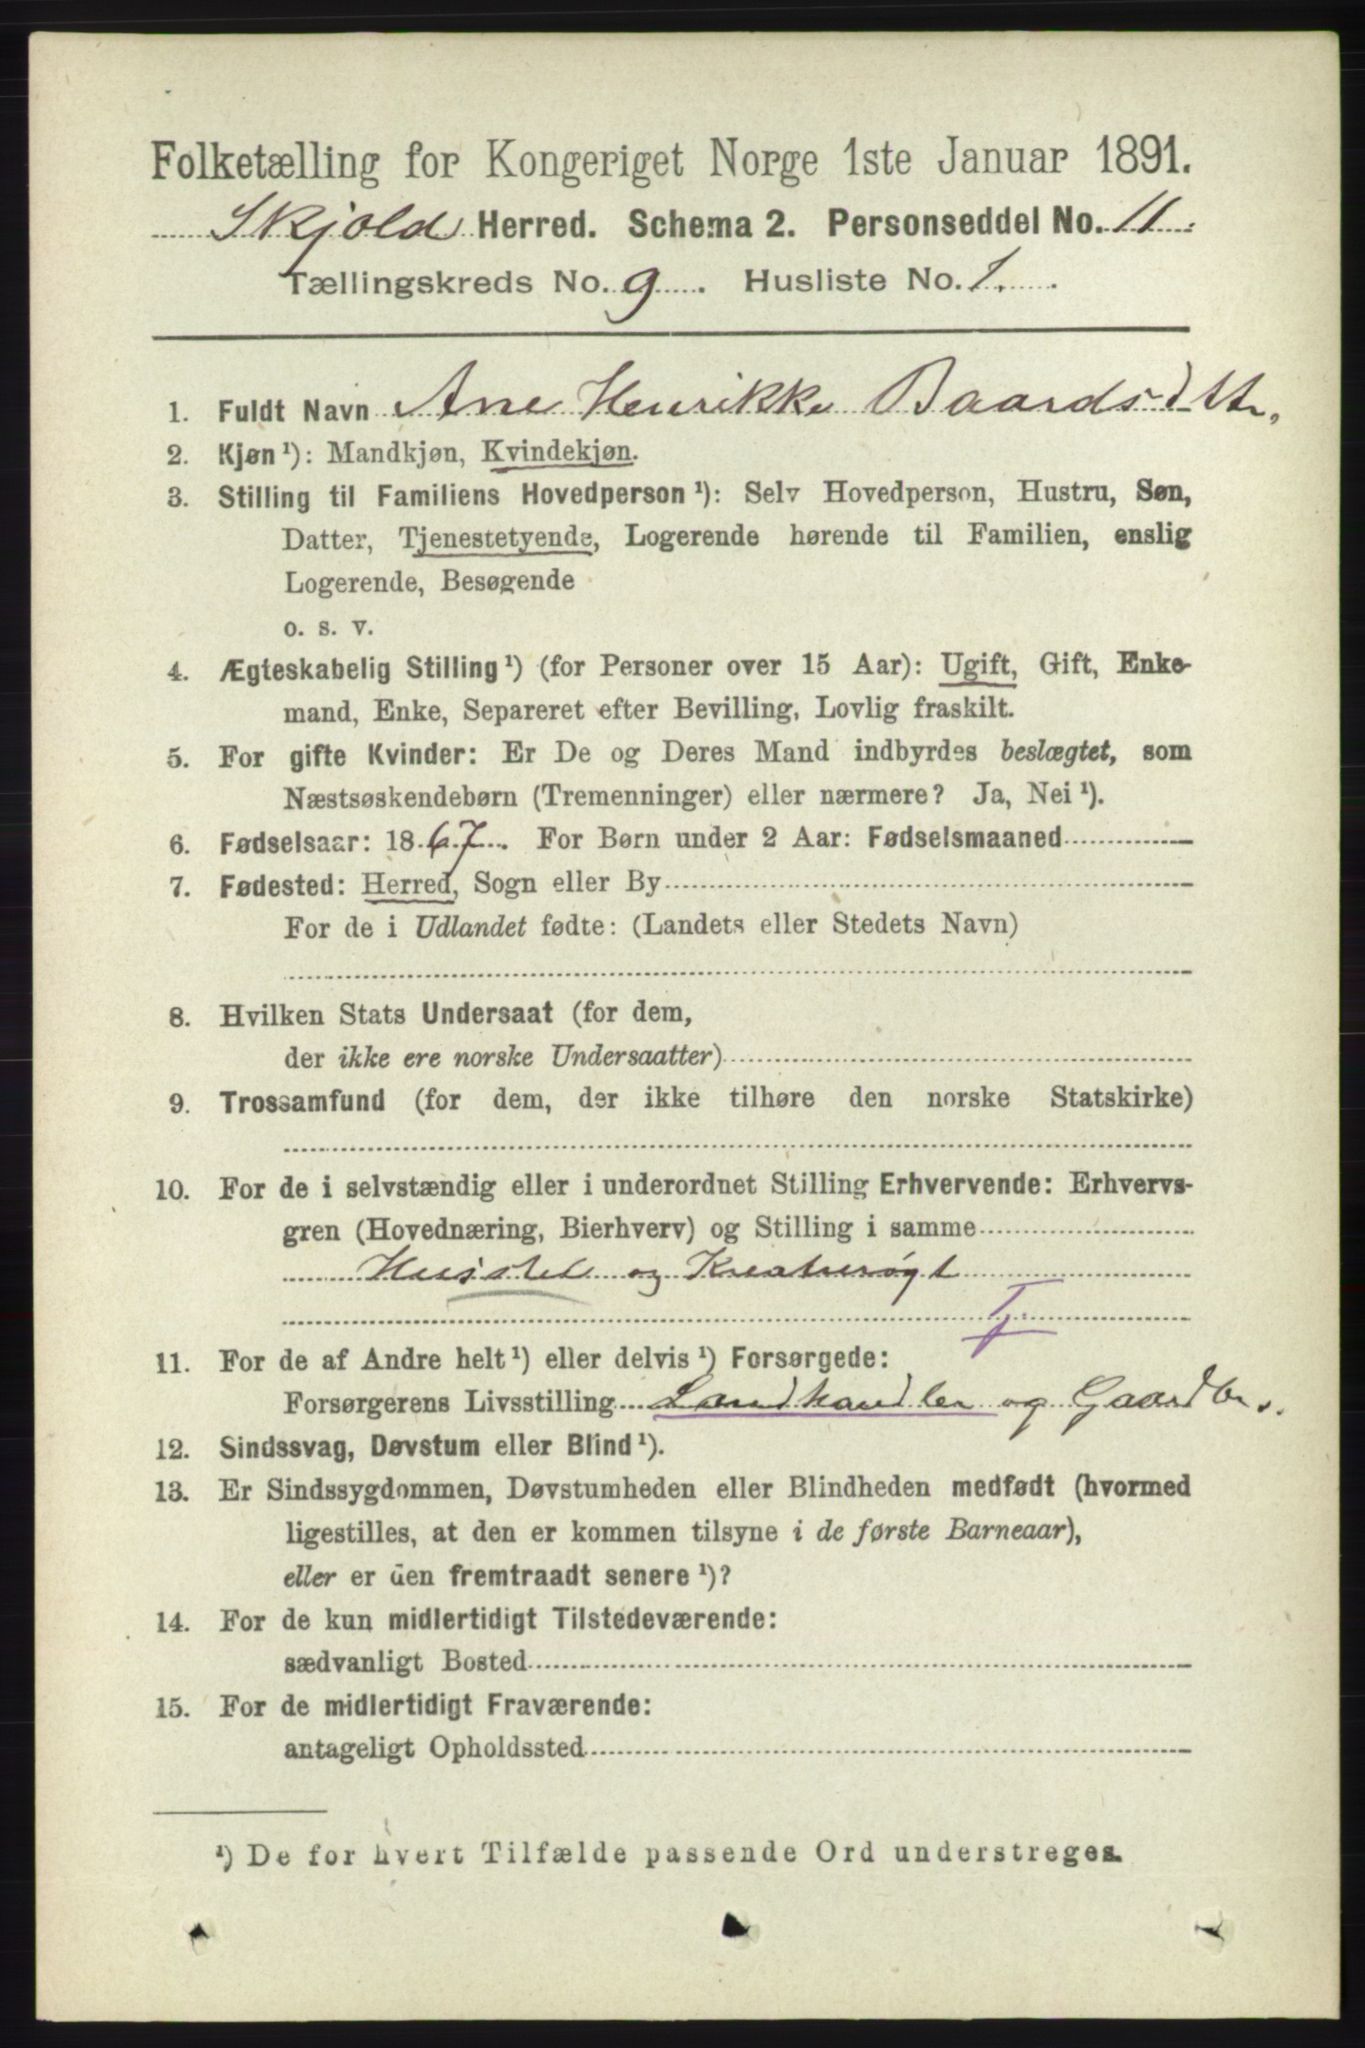 Folketælling for Kongeriget Norge 1ste Januar 1891.
Skjold Herred. Schema 2. Personseddel No. 11
Tællingskreds No. 9. Husliste No. 1.
1. Fuldt Navn Ane Henrikke Baardsdttr.
2. Kjøn ¹): Mandkjøn, Kvindekjøn.
3. Stilling til Familiens Hovedperson ¹): Selv Hovedperson, Hustru, Søn,
Datter, Tjenestetyende, Logerende hørende til Familien, enslig
Logerende, Besøgende
o. s. v.
4. Ægteskabelig Stilling ¹) (for Personer over 15 Aar): Ugift, Gift, Enke-
mand, Enke, Separeret efter Bevilling, Lovlig fraskilt.
5. For gifte Kvinder: Er De og Deres Mand indbyrdes beslægtet, som
Næstsøskendebørn (Tremenninger) eller nærmere? Ja, Nei ¹).
6. Fødselsaar: 1867. For Børn under 2 Aar: Fødselsmaaned
7. Fødested: Herred, Sogn eller By
For de i Udlandet fødte: (Landets eller Stedets Navn)
8. Hvilken Stats Undersaat (for dem,
der ikke ere norske Undersaatter)
9. Trossamfund (for dem, der ikke tilhøre den norske Statskirke)
10. For de i selvstændig eller i underordnet Stilling Erhvervende: Erhvervs-
gren (Hovednæring, Bierhverv) og Stilling i samme
Husstel og Kreaturrøgt
Tj.
11. For de af Andre helt ¹) eller delvis ¹) Forsørgede:
Forsørgerens Livsstilling Landhandler og Gaardbr.
12. Sindssvag, Døvstum eller Blind ¹).
13. Er Sindssygdommen, Døvstumheden eller Blindheden medfødt (hvormed
ligestilles, at den er kommen tilsyne i de første Barneaar),
eller er den fremtraadt senere ¹)?
14. For de kun midlertidigt Tilstedeværende:
sædvanligt Bosted
15. For de midlertidigt Fraværende:
antageligt Opholdssted
¹) De for hvert Tilfælde passende Ord understreges.